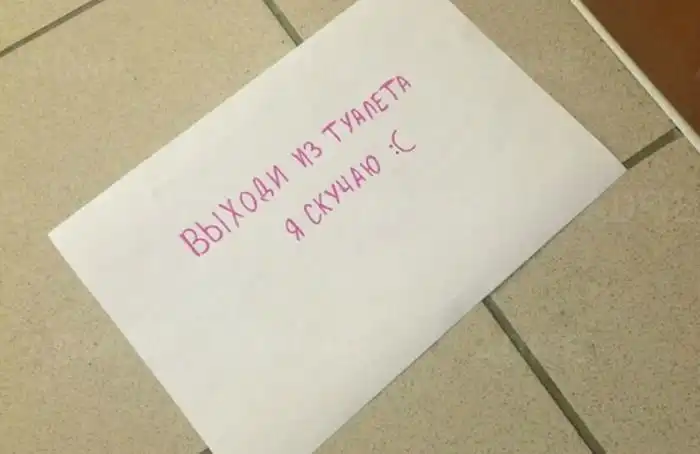 ВЫХОДИ ИЗ ТУАЛЕТА
Я СКУЧАЮ :С